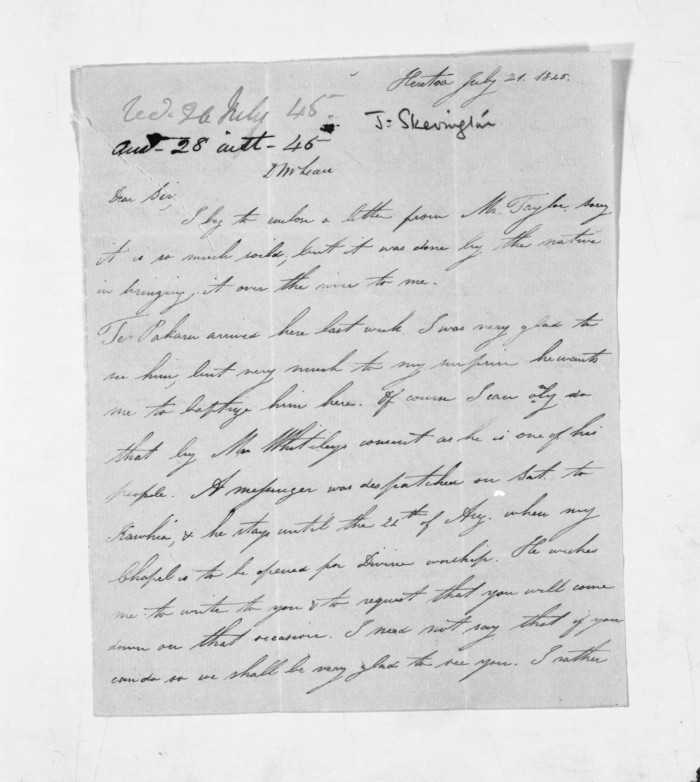 July 21. 1845.
Recd. 26 July 45
J: Skevington
Ansd - 28 inst - 45
D McLean
Dear Sir,
I beg to enclose a letter from Mr. Taylor. sorry
it is so much soild, but it was done by the native
in bringing it over the river to me.
Te Pakaru arrived here last week. I was very glad to
see him, but very much to my surprise he wants
me to baptize him here. Of course I can only do
that by Mr. Whiteleys consent as he is one of his
people. A messenger was despatched on Sat. to
Kawhia, & he stays until the 24th of Aug. when my
Chapel is to be opened for Divine worship. He wishes
me to write to you & to request that you will come
down on that occasion. I need not say that if you
can do so we shall be very glad to see you. I rather